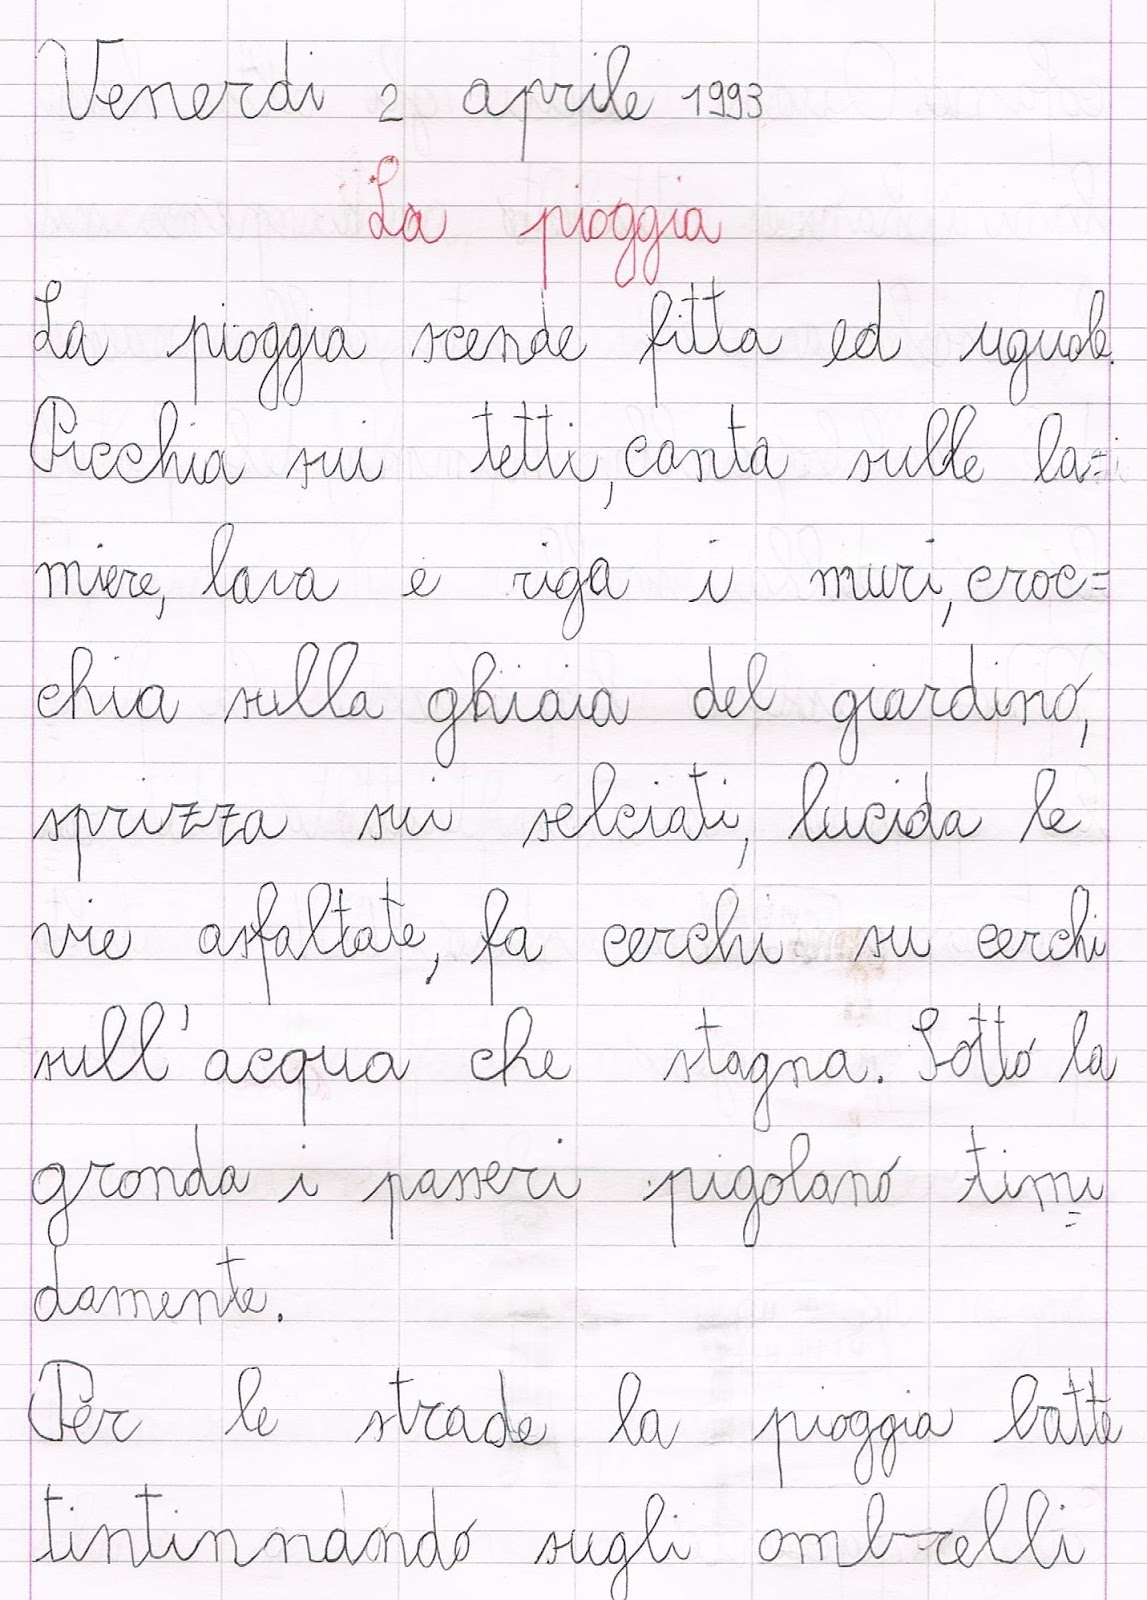 Venerdi 2 aprile 1993
La pioggia
La pioggia scende fitta ed uguale.
Picchia sui tetti, canta sulle la=
miere, lava e riga i muri, croc=
chia sulla ghiaia del giardino,
sprizza sui selciati, lucida le
vie asfaltate, fa cerchi su cerchi
sull'acqua che stagna. Sotto la
gronda i passeri pigolano timi=
damente.
Per le strade la pioggia batte
tintinnando sugli ombrelli